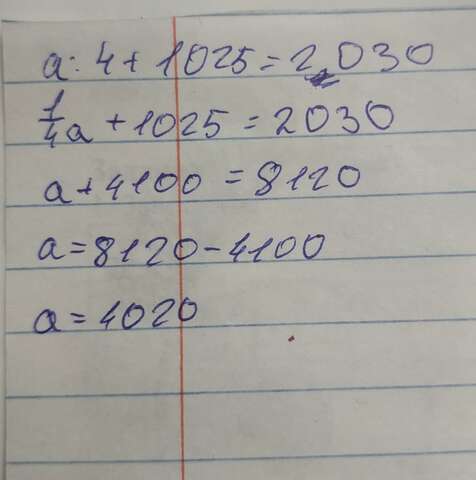 a : 4 + 1025 = 2030
1/4 a + 1025 = 2030
a + 4100 = 8120
a = 8120 - 4100
a = 4020